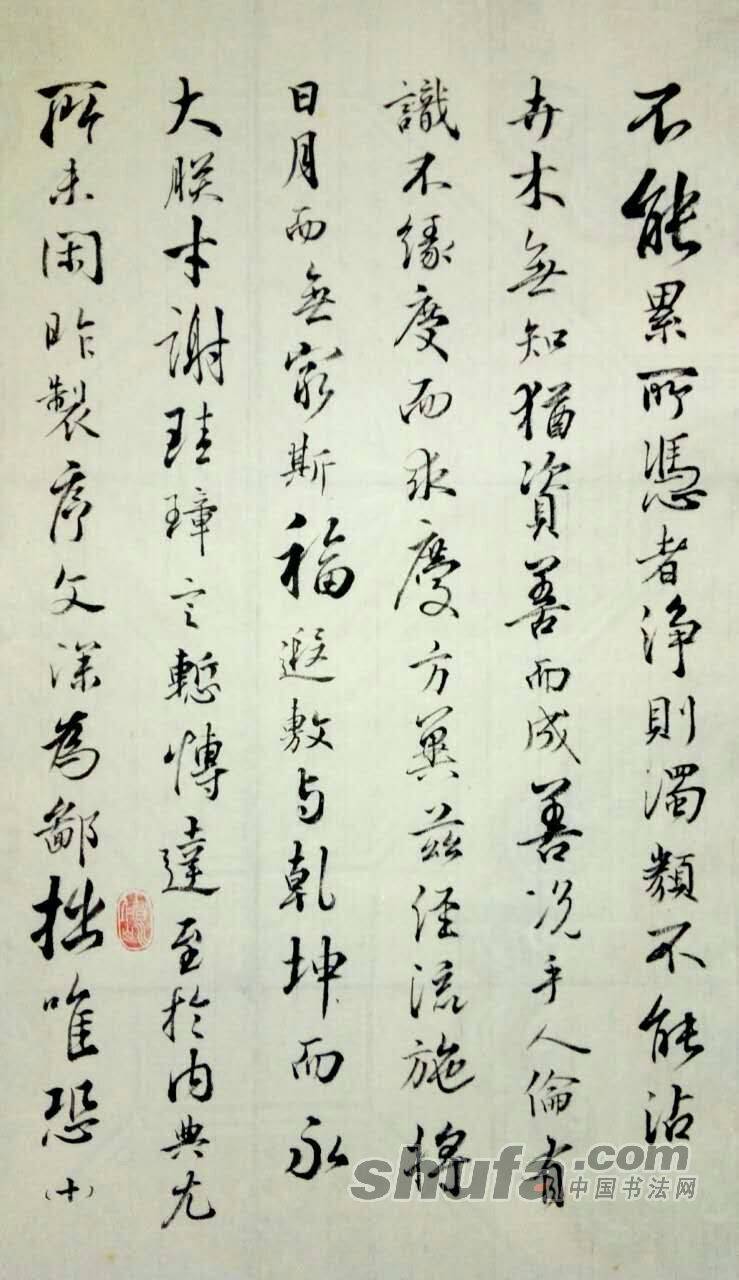 不能累所憑者浄則濁類不能沾
卉木無知猶資善而成善況乎人倫有
識不緣慶而求慶方冀茲經流施將
日月而無窮斯福遐敷与乾坤而永
大朕才謝珪璋言慙博達至於内典尤
所未閑昨製序文深為鄙拙唯恐
(十)
shufa.com
中国书法网